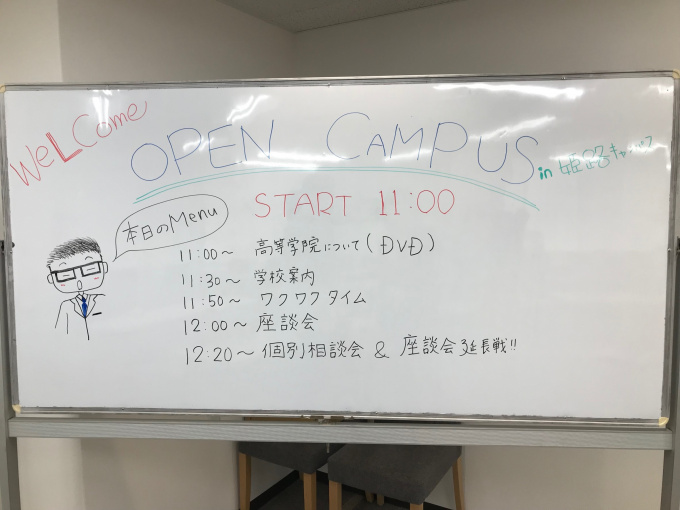 WeLCome
OPEN CAMPUS in 姫路キャンパス
START 11:00
本日のMenu
11:00～ 高等学院について(DVD)
11:30～ 学校案内
11:50～ ワクワクタイム
12:00～ 座談会
12:20～ 個別相談会 & 座談会延長戦!!